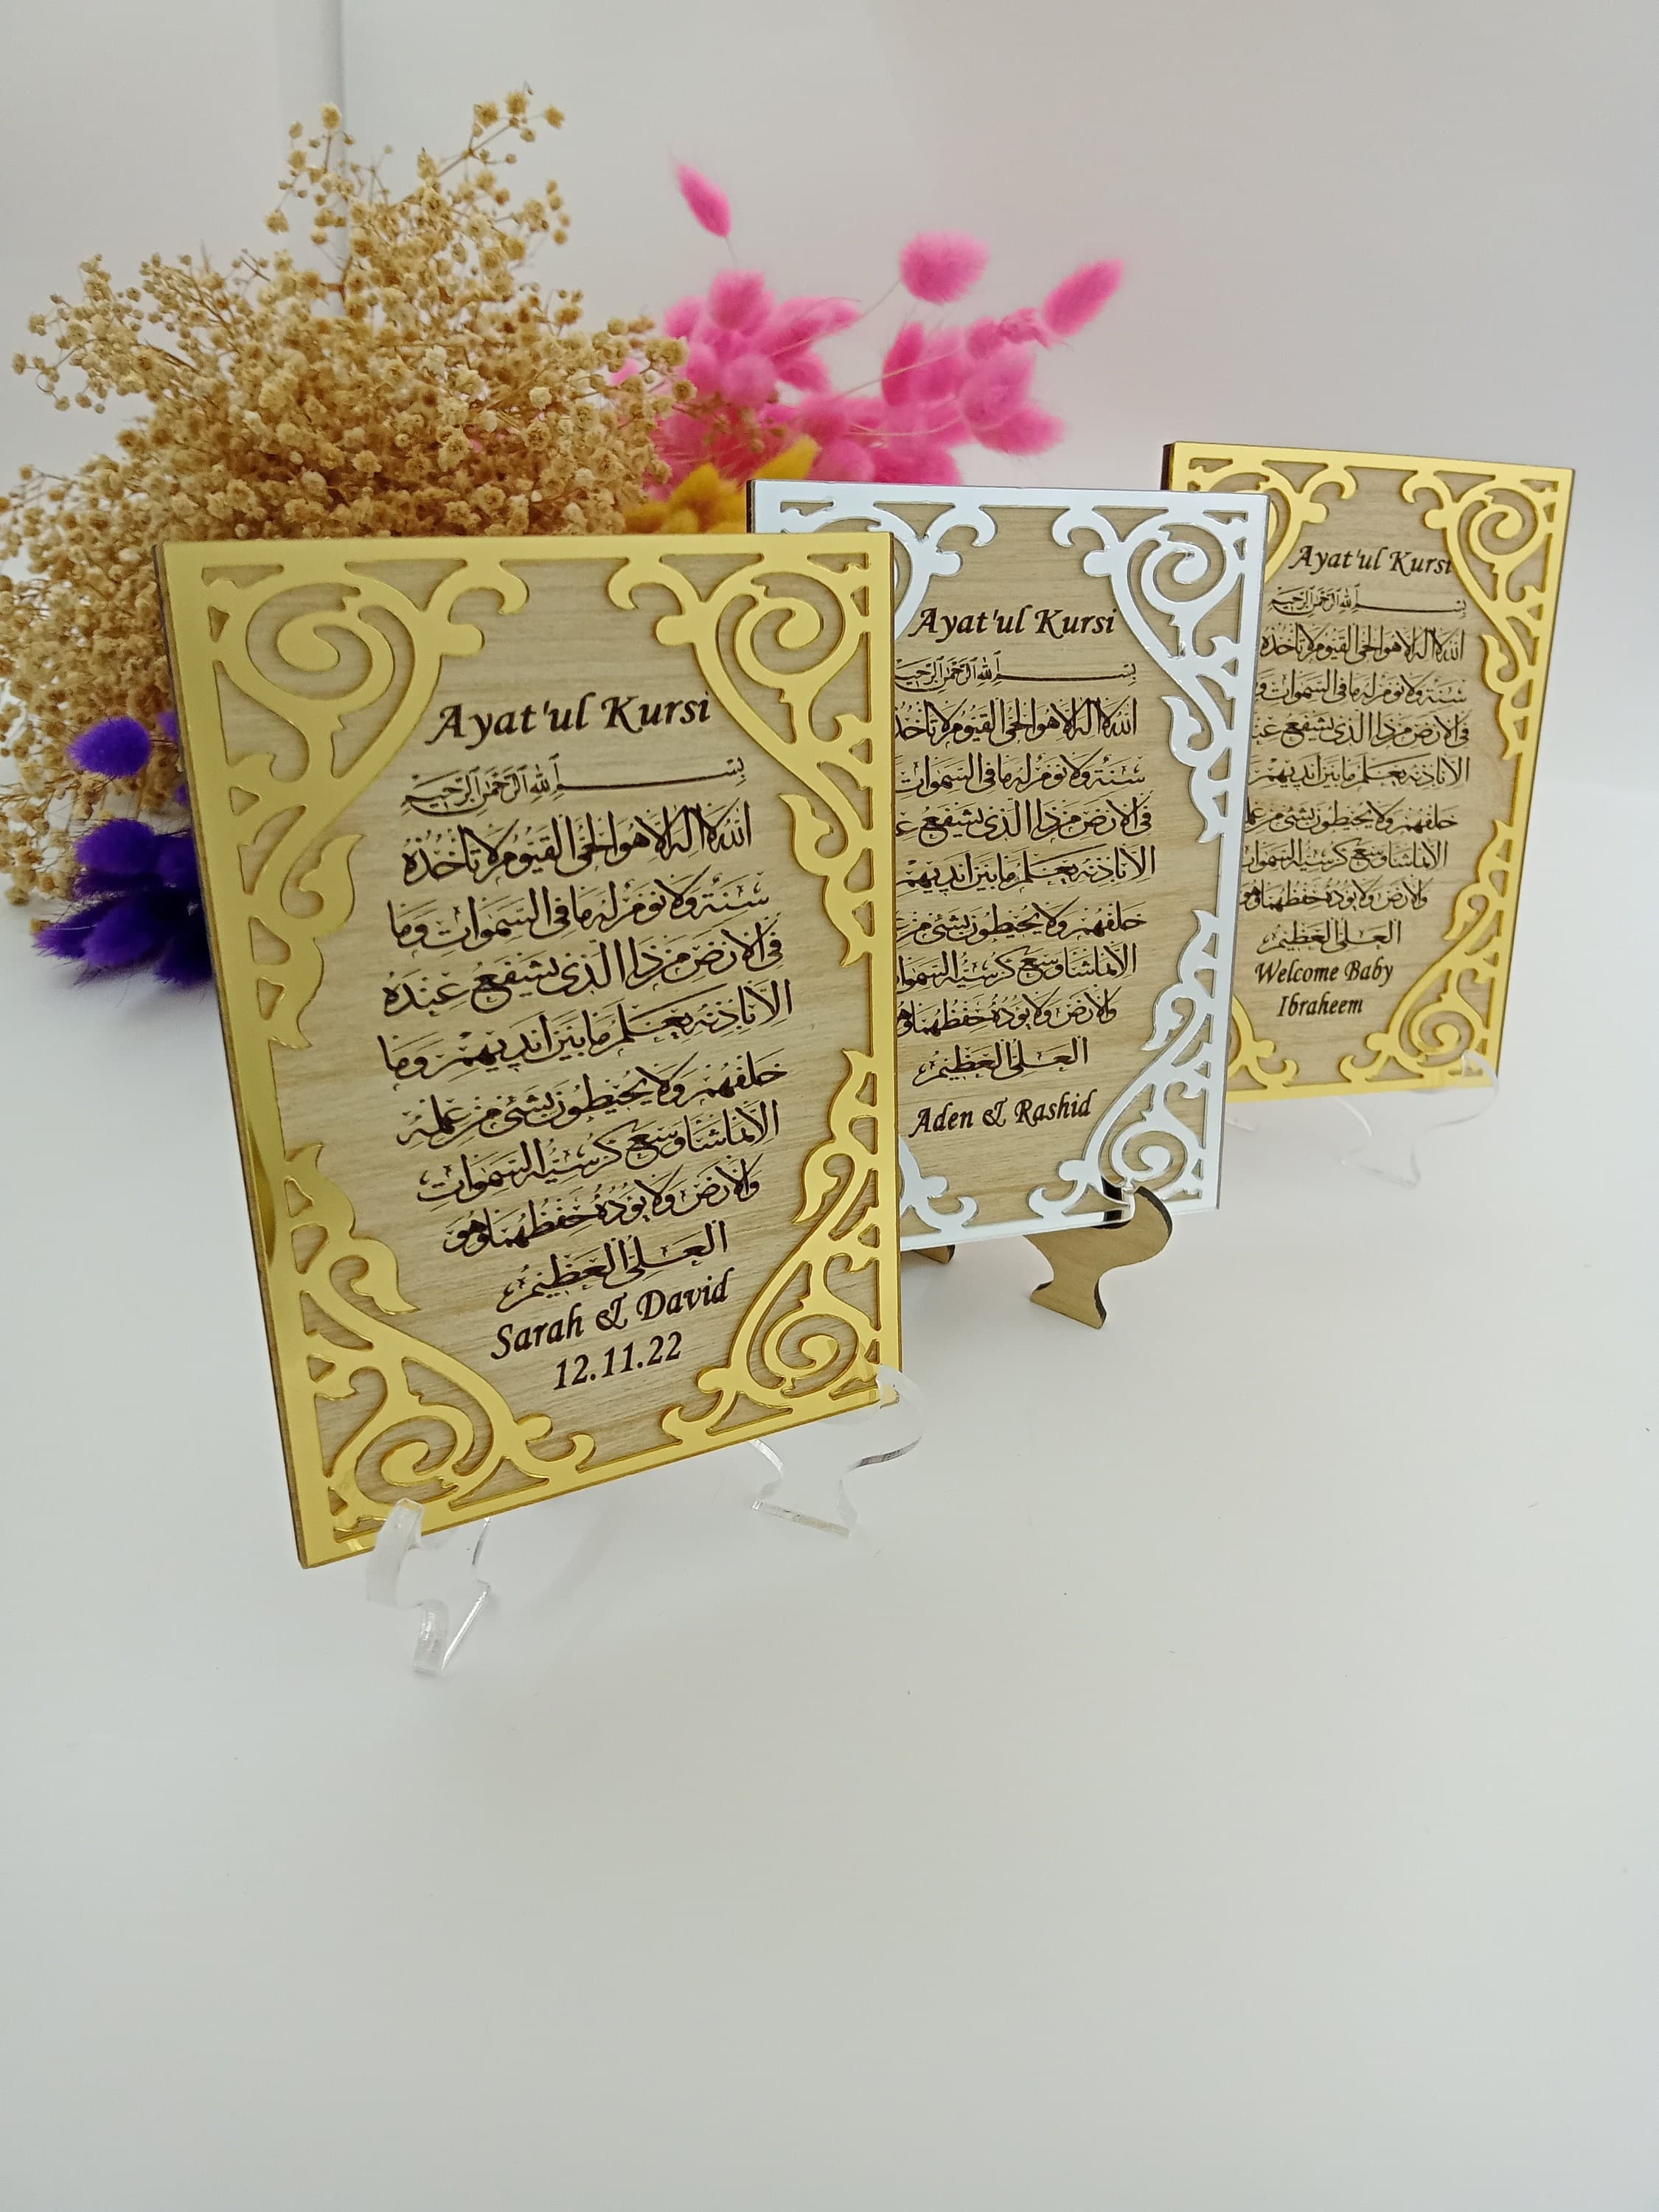 Ayat'ul Kursi
بسم الله الرحمن الرحيم
الله لا اله الا هو الحي القيوم لا تأخذه
سنة ولا نوم له ما في السموات وما
في الارض من ذا الذي يشفع عنده
الا باذنه يعلم ما بين ايديهم وما
خلفهم ولا يحيطون بشئ من علمه
الا بما شاء وسع كرسيه السموات
والارض ولا يؤده حفظهما وهو
العلي العظيم
Sarah & David
12.11.22
Ayat'ul Kursi
بسم الله الرحمن الرحيم
الله لا اله الا هو الحي القيوم لا تأخذه
سنة ولا نوم له ما في السموات
في الارض من ذا الذي يشفع
الا باذنه يعلم ما بين ايديهم
خلفهم ولا يحيطون بشئ من
الا بما شاء وسع كرسيه السموات
والارض ولا يؤده حفظهما
العلي العظيم
Aden & Rashid
Ayat'ul Kursi
بسم الله الرحمن الرحيم
الله لا اله الا هو الحي القيوم لا تأخذه
سنة ولا نوم له ما في السموات
في الارض من ذا الذي يشفع
الا باذنه يعلم ما بين ايديهم
خلفهم ولا يحيطون بشئ من
الا بما شاء وسع كرسيه السموات
والارض ولا يؤده حفظهما وهو
العلي العظيم
Welcome Baby
Ibraheem